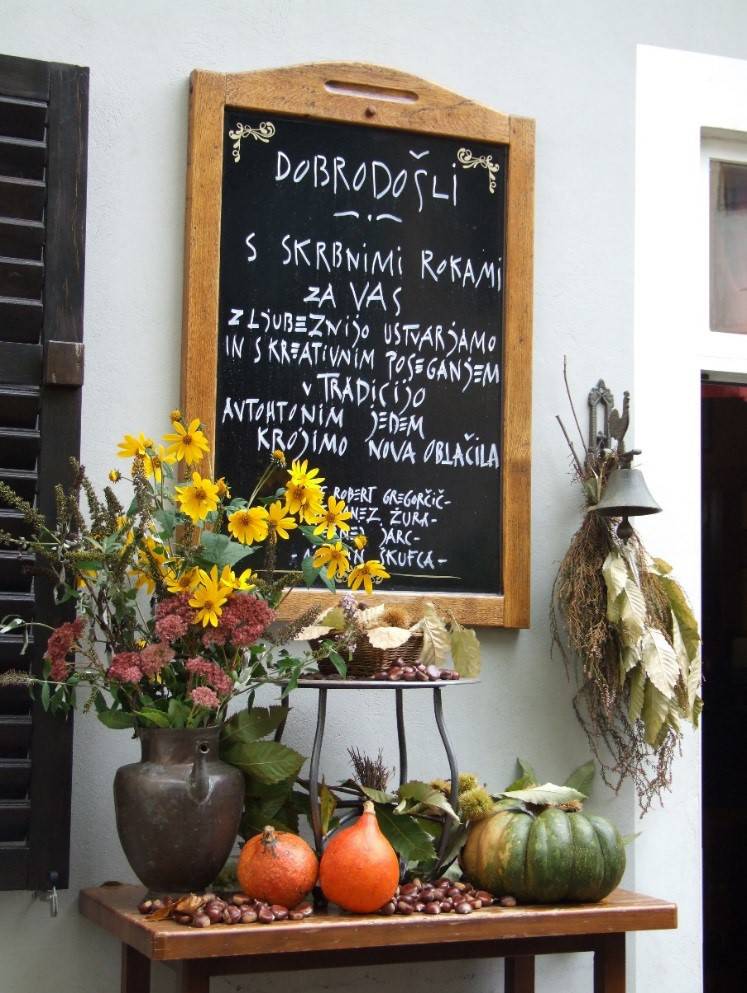 DOBRODOŠLI
S SKRBNIMI ROKAMI
ZA VAS
Z LJUBEZNIJO USTVARJAMO
IN S KREATIVNIM POSEGANJEM
V TRADICIJO
AVTOHTONIM JEDEM
KROJIMO NOVA OBLAČILA
ROBERT GREGORČIČ-
ŽURA-
JARC-
ŠKUFCA-